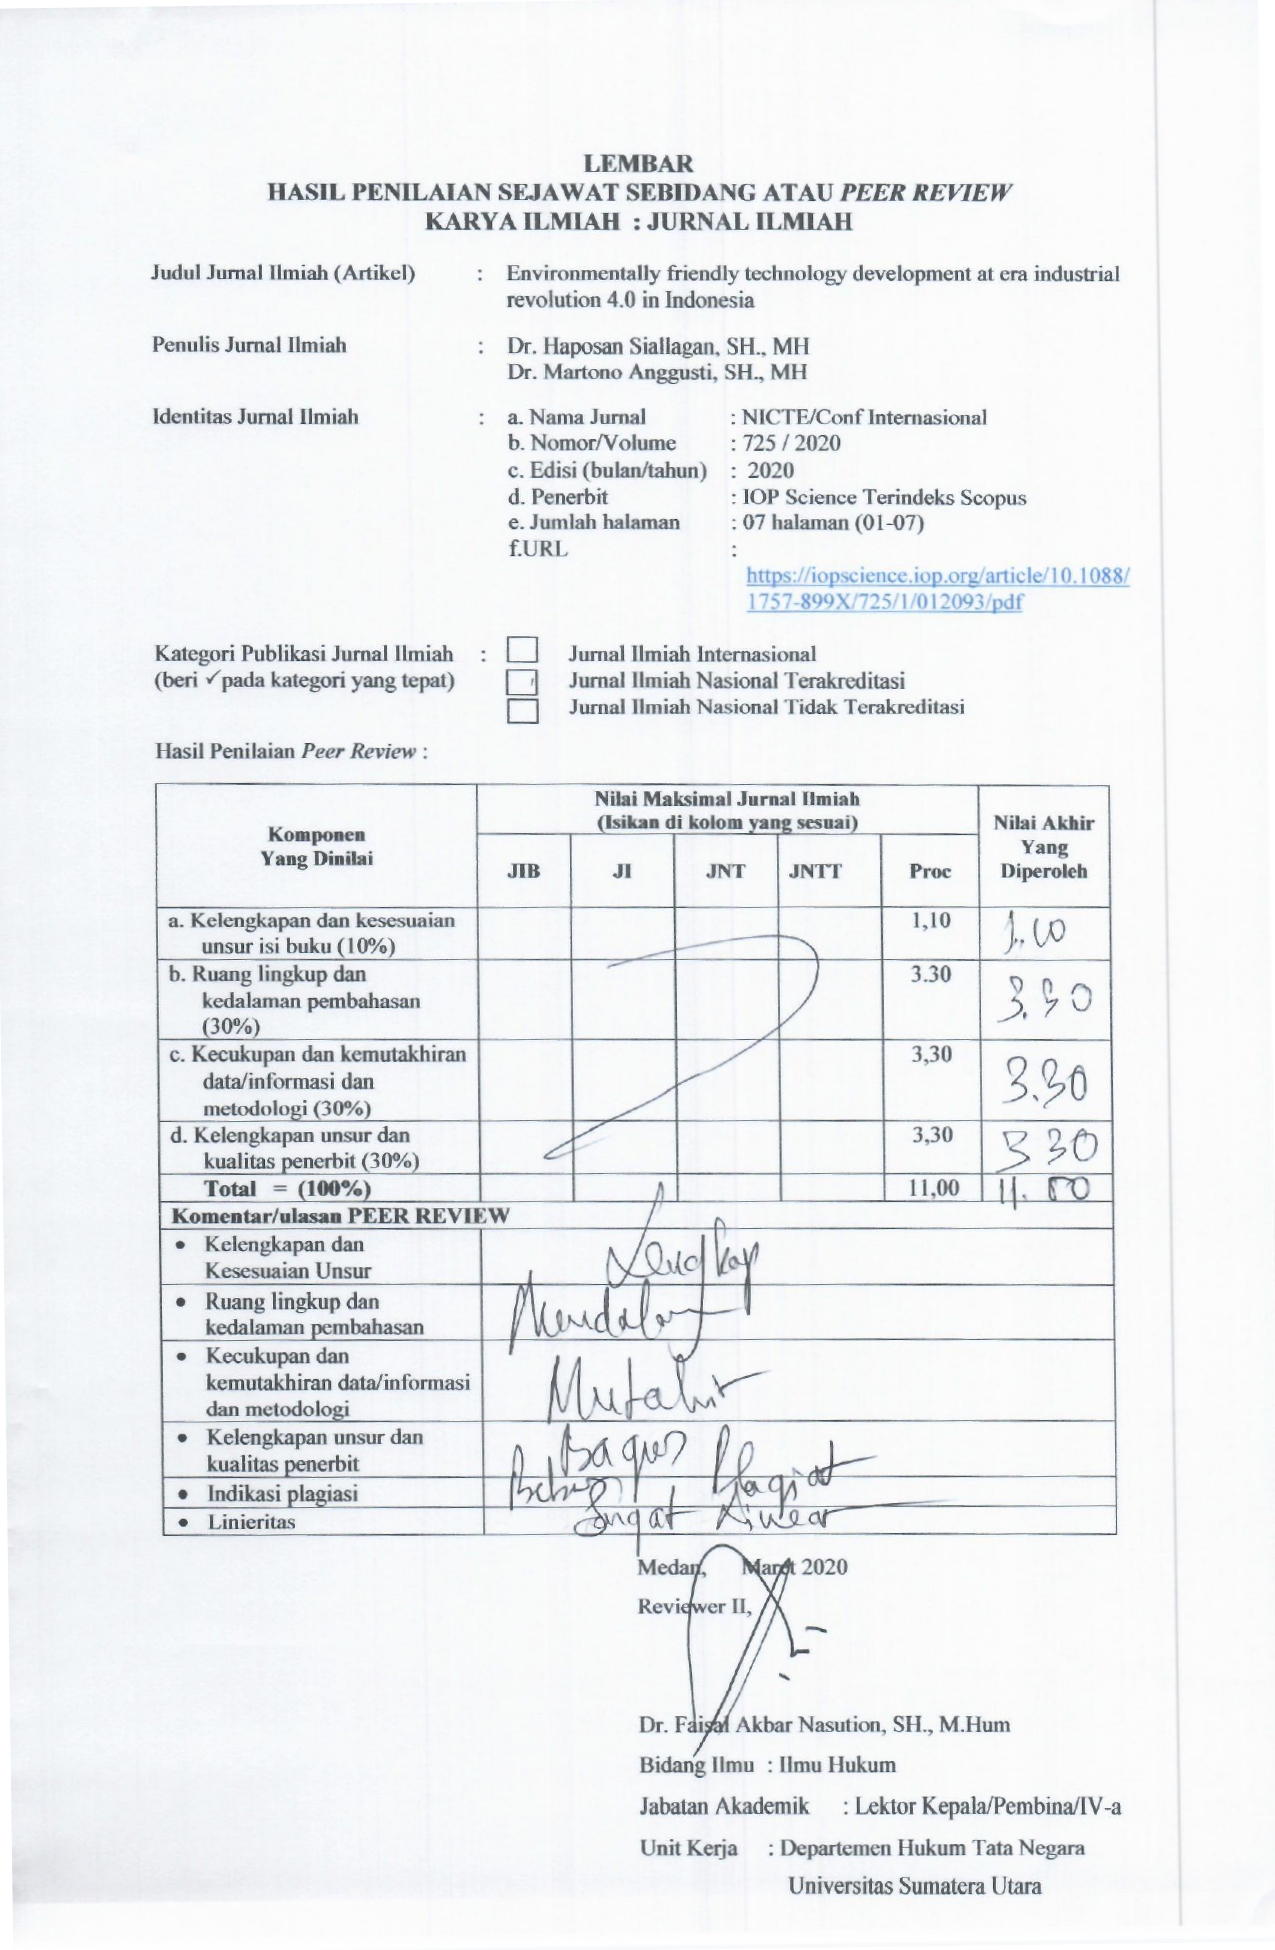 LEMBAR
HASIL PENILAIAN SEJAWAT SEBIDANG ATAU PEER REVIEW
KARYA ILMIAH : JURNAL ILMIAH
Judul Jurnal Ilmiah (Artikel) : Environmentally friendly technology development at era industrial
revolution 4.0 in Indonesia
Penulis Jurnal Ilmiah : Dr. Haposan Siallagan, SH., MH
Dr. Martono Anggusti, SH., MH
Identitas Jurnal Ilmiah : a. Nama Jurnal : NICTE/Conf Internasional
b. Nomor/Volume : 725 / 2020
c. Edisi (bulan/tahun) : 2020
d. Penerbit : IOP Science Terindeks Scopus
e. Jumlah halaman : 07 halaman (01-07)
f.URL :
https://iopscience.iop.org/article/10.1088/
1757-899X/725/1/012093/pdf
Kategori Publikasi Jurnal Ilmiah : Jurnal Ilmiah Internasional
(beri ✓pada kategori yang tepat) Jurnal Ilmiah Nasional Terakreditasi
Jurnal Ilmiah Nasional Tidak Terakreditasi
Hasil Penilaian Peer Review :
Komponen
Yang Dinilai
Nilai Maksimal Jurnal Ilmiah
(Isikan di kolom yang sesuai)
Nilai Akhir
Yang
Diperoleh
JIB JI JNT JNTT Proc
a. Kelengkapan dan kesesuaian 1,10
unsur isi buku (10%)
b. Ruang lingkup dan 3.30 3.30
kedalaman pembahasan
(30%)
c. Kecukupan dan kemutakhiran 3,30 3.30
data/informasi dan
metodologi (30%)
d. Kelengkapan unsur dan 3,30 3 30
kualitas penerbit (30%)
Total = (100%) 11,00
Komentar/ulasan PEER REVIEW
• Kelengkapan dan Lengkap
Kesesuaian Unsur
• Ruang lingkup dan Mendalam
kedalaman pembahasan
• Kecukupan dan
kemutakhiran data/informasi Mutahir
dan metodologi
• Kelengkapan unsur dan Bagus
kualitas penerbit
• Indikasi plagiasi Bebas Plagiat
• Linieritas Sangat Linear
Medan, Maret 2020
Reviewer II,
Dr. Faisal Akbar Nasution, SH., M.Hum
Bidang Ilmu : Ilmu Hukum
Jabatan Akademik : Lektor Kepala/Pembina/IV-a
Unit Kerja : Departemen Hukum Tata Negara
Universitas Sumatera Utara